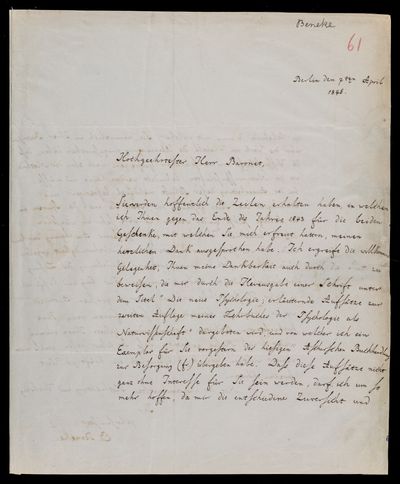 Beneke
61
Berlin den 7ten April
1845.
Hochgeehrtester Herr Baronet,
Sie werden hoffentlich die Zeilen erhalten haben, in welchen
ich Ihnen gegen das Ende des Jahres 1843 für die beiden
Geschenke, mit welchen Sie mich erfreut hatten, meinen
herzlichen Dank ausgesprochen habe. Ich ergreife die
Gelegenheit, Ihnen meine Dankbarkeit auch durch die zu
beweisen, da mir durch die Herausgabe einer Schrift unter
dem Titel "Die neue Psychologie; erläuternde Aufsätze zur
zweiten Auflage meines Lehrbuches der Psychologie als
Naturwissenschaft" dargeboten wird, und von welcher ich ein
Exemplar für Sie vorgestern der hiesigen Asherschen Buchhandlung
zur Besorgung übergeben habe. Daß diese Aufsätze nicht
ganz ohne Interesse für Sie sein werden, darf ich um so
mehr hoffen, da mir die entschiedene Zuversicht und